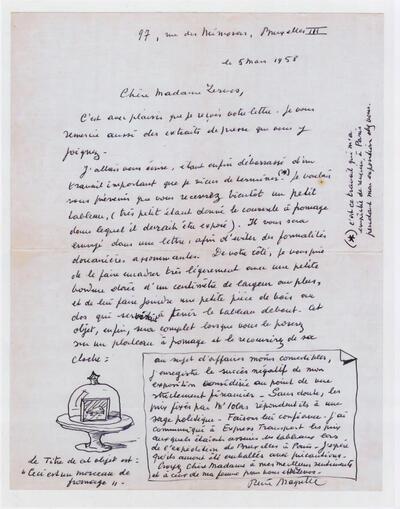 97, rue des Mimosas, Bruxelles III
le 5 mars 1958
Chère Madame Zervos,
C'est avec plaisir que je reçois votre lettre. Je vous
remercie aussi des extraits de presse que vous y
joignez.
J'allais vous écrire, étant enfin débarrassé d'un
travail important que je viens de terminer (*) Je voulais
vous prévenir que vous recevrez bientôt un petit
tableau, (très petit étant donné le couvercle à fromage
dans lequel il devrait être exposé). Il vous sera
envoyé dans une lettre, afin d'éviter des formalités
douanières, assommantes. De votre côté, je vous prie
de le faire encadrer très légèrement avec une petite
bordure dorée d'un centimètre de largeur au plus,
et de lui faire joindre une petite pièce de bois au
dos qui servirait à tenir le tableau debout. Cet
objet, enfin, sera complet lorsque vous le poserez
sur un plateau à fromage et le recouvrirez de sa
cloche :
(*) c'est ce travail qui m'a
empêché de venir à Paris
pendant mon exposition chez vous.
le Titre de cet objet est :
"Ceci est un morceau de
fromage".
au sujet d'affaires moins comestibles,
j'enregistre le succès négatif de mon
exposition considérée au point de vue
strictement financier. Sans doute, les
prix fixés par Mr Iolas répondent-ils à une
sage politique. Faisons lui confiance. J'ai
communiqué à Express Transport les prix
auxquels étaient assurés les tableaux lors
de l'expédition de Bruxelles à Paris. J'espère
qu'ils auront été emballés avec précautions.
Croyez Chère Madame à mes meilleurs sentiments
et à ceux de ma femme pour vous
René Magritte